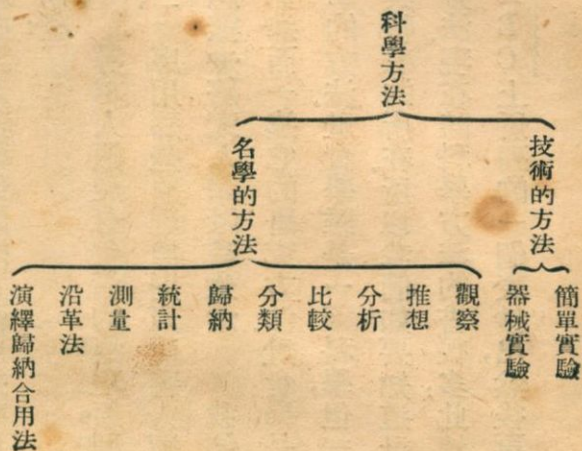 科學方法
技術的方法
簡單實驗
器械實驗
名學的方法
觀察
推想
分析
比較
分類
歸納
統計
測量
沿革法
演繹歸納合用法